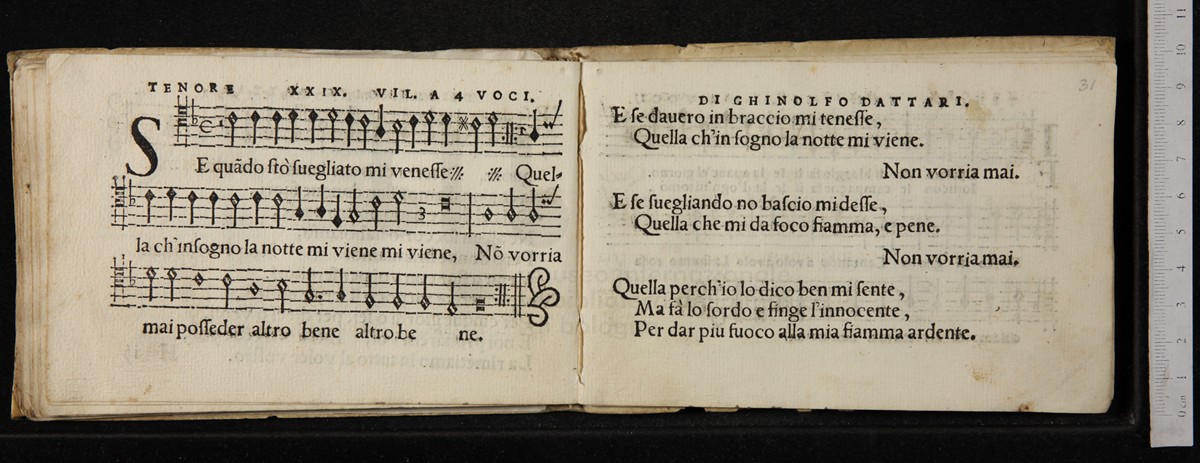 TENORE XXIX. VIL. A 4 VOCI.
SE quãdo stò suegliato mi venesse ·//· ·//· Quel-
la ch'insogno la notte mi viene mi viene, Nõ vorria
mai posseder altro bene altro be ne.
31
DI GHINOLFO DATTARI.
E se dauero in braccio mi tenesse,
Quella ch'in sogno la notte mi viene.
Non vorria mai.
E se suegliando no bascio mi desse,
Quella che mi da foco fiamma, e pene.
Non vorria mai.
Quella perch'io lo dico ben mi sente,
Ma fà lo sordo e finge l'innocente,
Per dar piu fuoco alla mia fiamma ardente.
0 cm 1 2 3 4 5 6 7 8 9 10 11